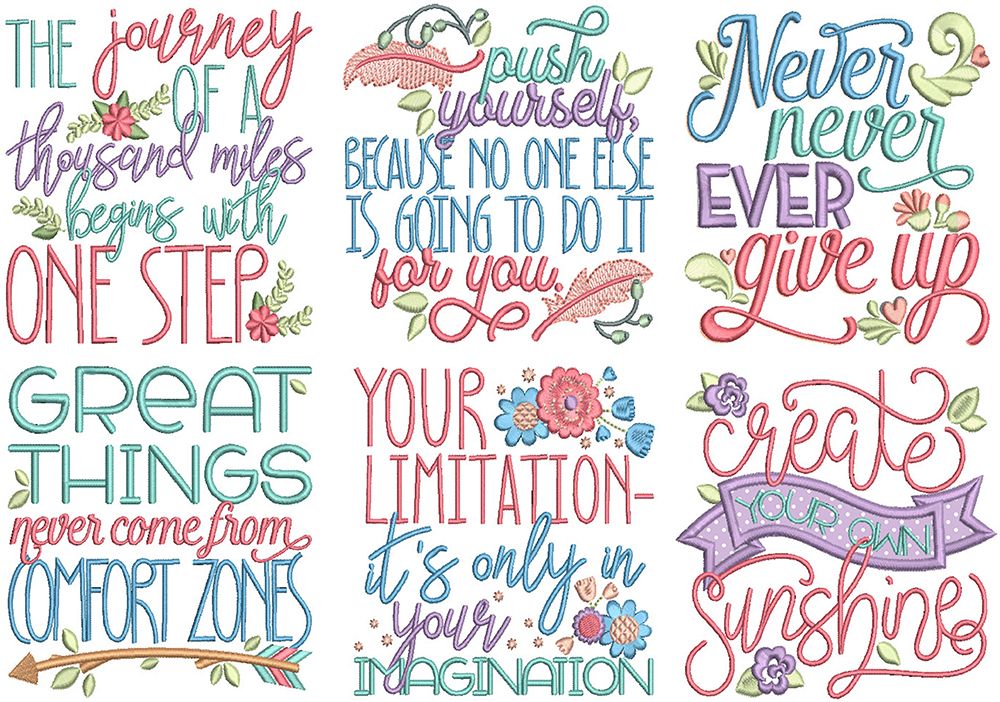 THE journey
OF A
thousand miles
begins with
ONE STEP
push
yourself,
BECAUSE NO ONE ELSE
IS GOING TO DO IT
for you.
Never
never
EVER
give up
GREAT
THINGS
never come from
COMFORT ZONES
YOUR
LIMITATION-
it's only in
your
IMAGINATION
create
YOUR OWN
sunshine